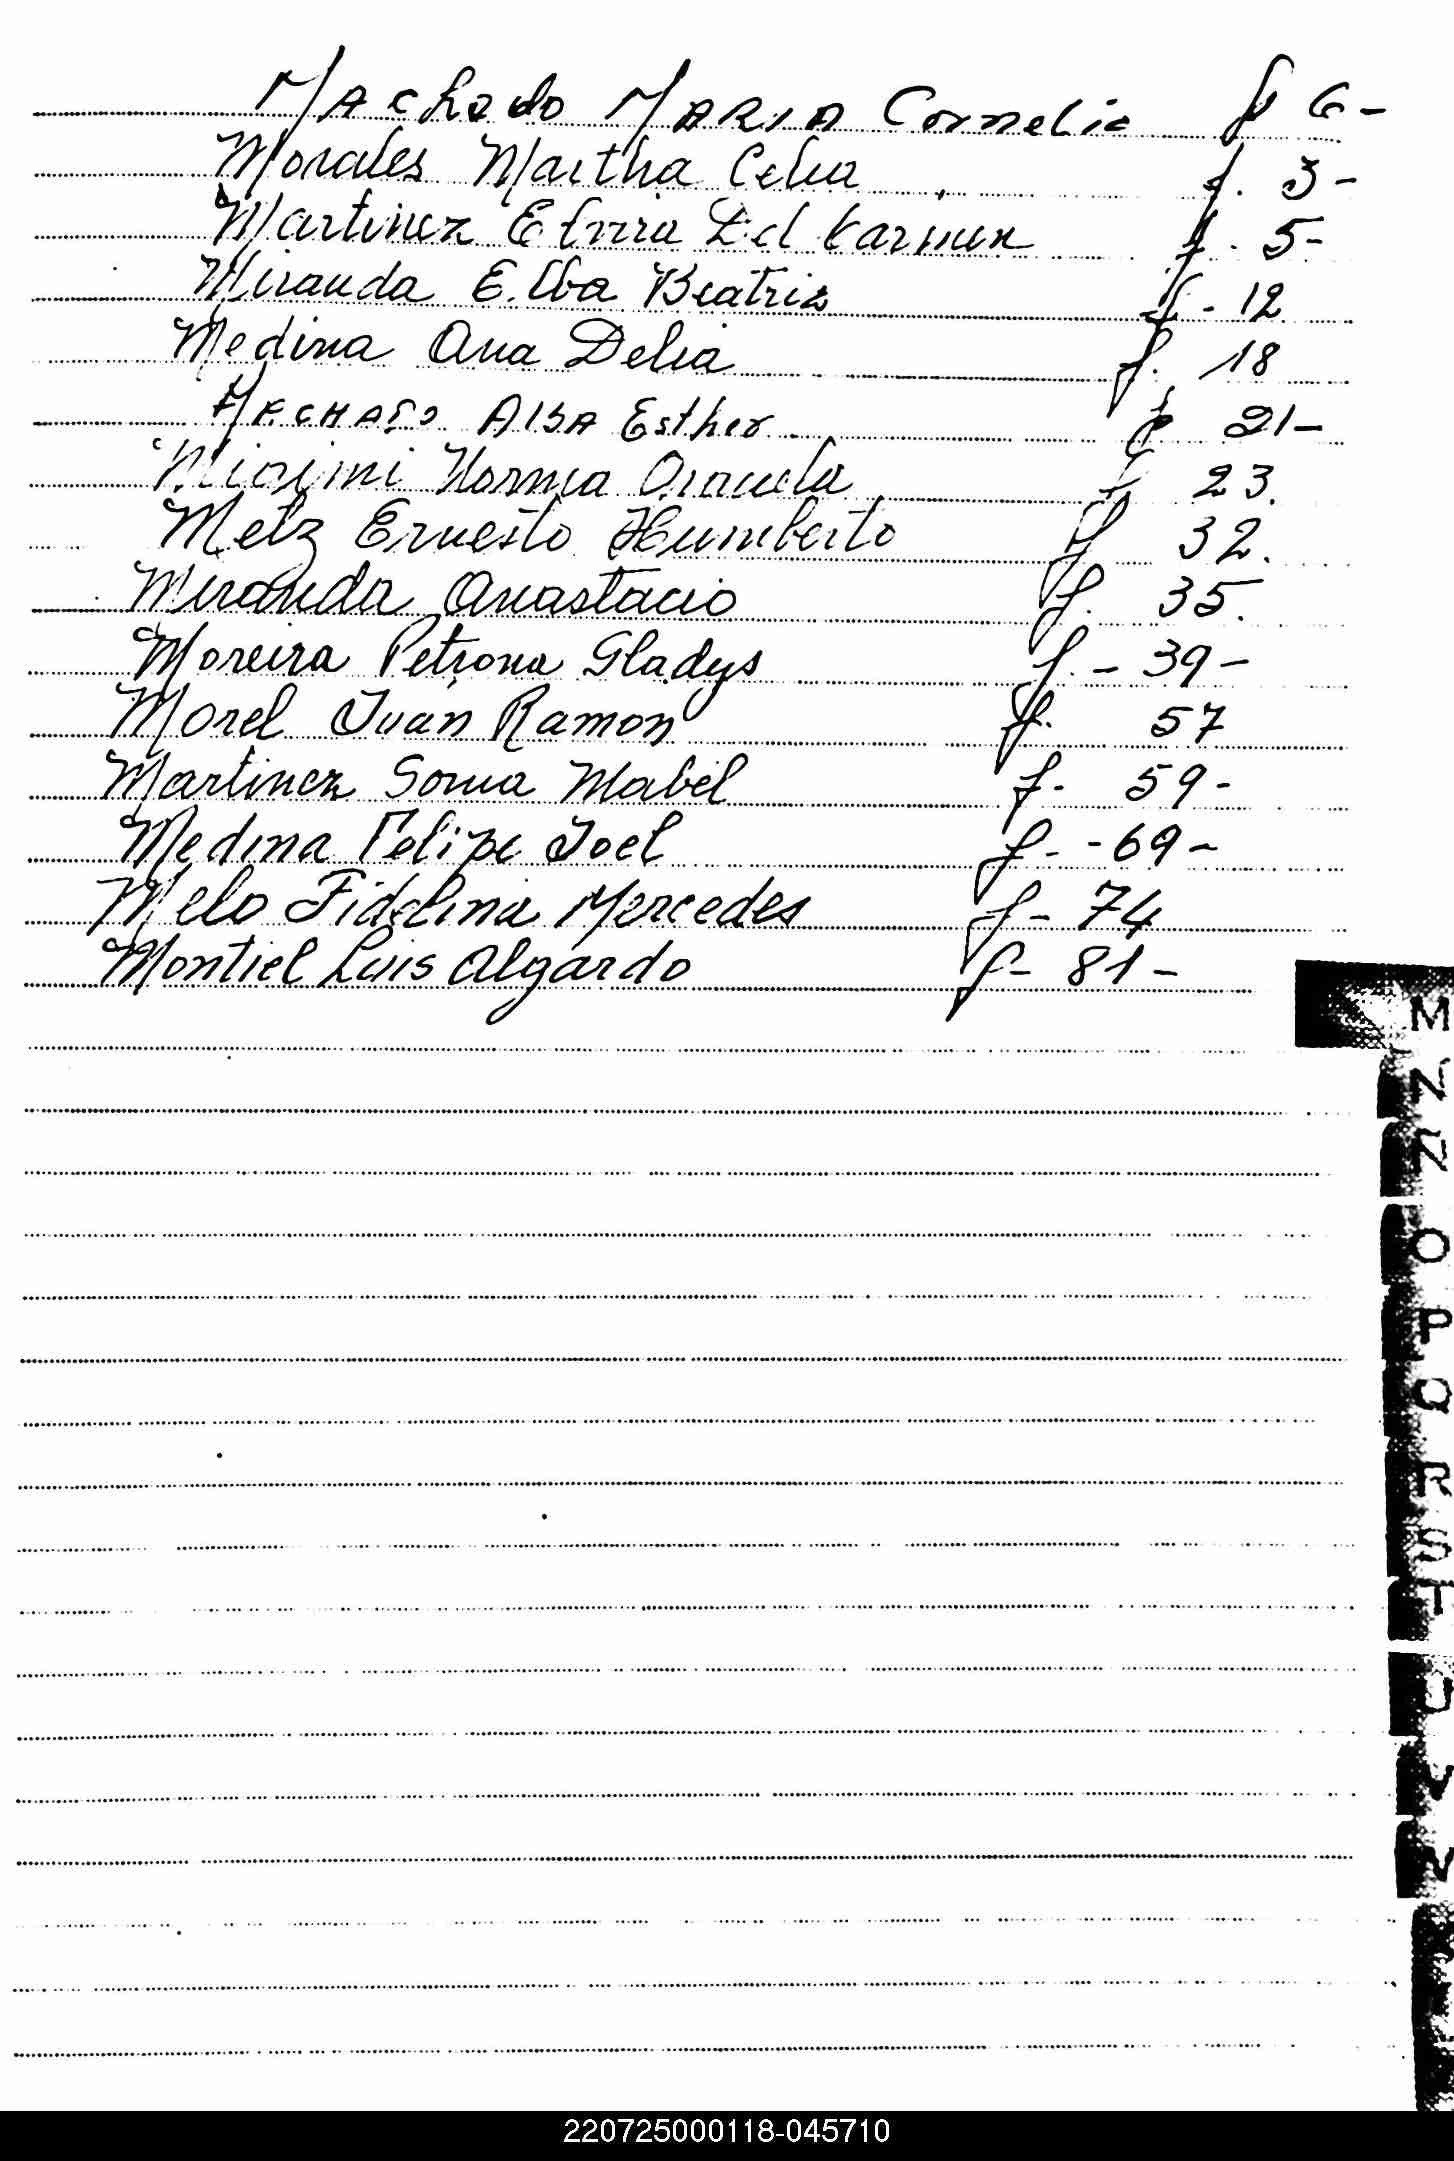 Machado MARIA Cornelia f 6-
Morales Martha Celia f. 3-
Martinez Elvira Del Carmen f. 5-
Miranda Elba Beatriz f - 12
Medina Ana Delia f. 18
MACHADO Alba Esther f 21-
Norma f 23.
Metz Ernesto Humberto f 32.
Miranda Anastacio f. 35.
Moreira Petrona Gladys f. - 39-
Morel Juan Ramon f. 57
Martinez Sonia Mabel f- 59-
Medina Felipe Joel f- - 69-
Melo Fidelina Mercedes f- 74
Montiel Luis Algardo f- 81-
M
N
N
O
P
Q
R
S
T
U
V
220725000118-045710